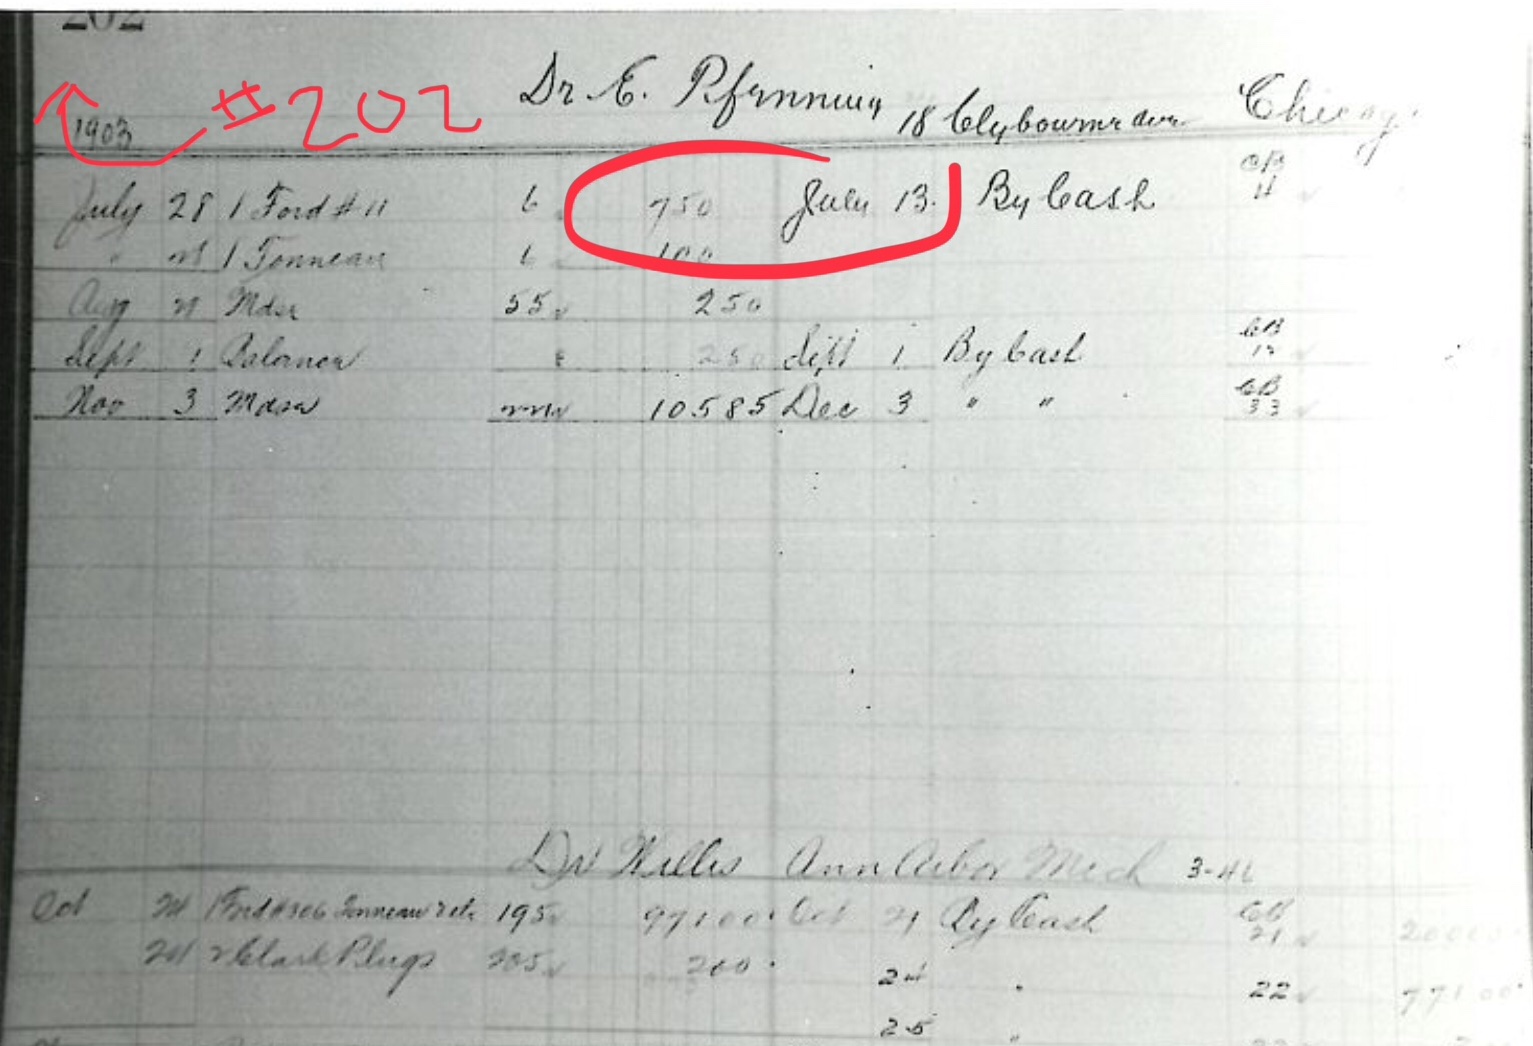 202
#202
Dr E. Pfenning 18 Clybourne Ave Chicago
1903
CB
July 28 1 Ford #11 6 750 July 13 By Cash 4
" 28 1 Tonneau 6 100
Aug 21 Mdse 55 250
CB
Sept 1 Balance 250 Sept 1 By Cash
CB
Nov 3 Mdse 10585 Dec 3 " " 33
Dr Willis Ann Arbor Mich
CB
Oct 24 1 Ford #306 Tonneau 195 97100 Oct 21 By Cash 21
24 2 Clark Plugs 205 200 24 " 22 77100
25 "